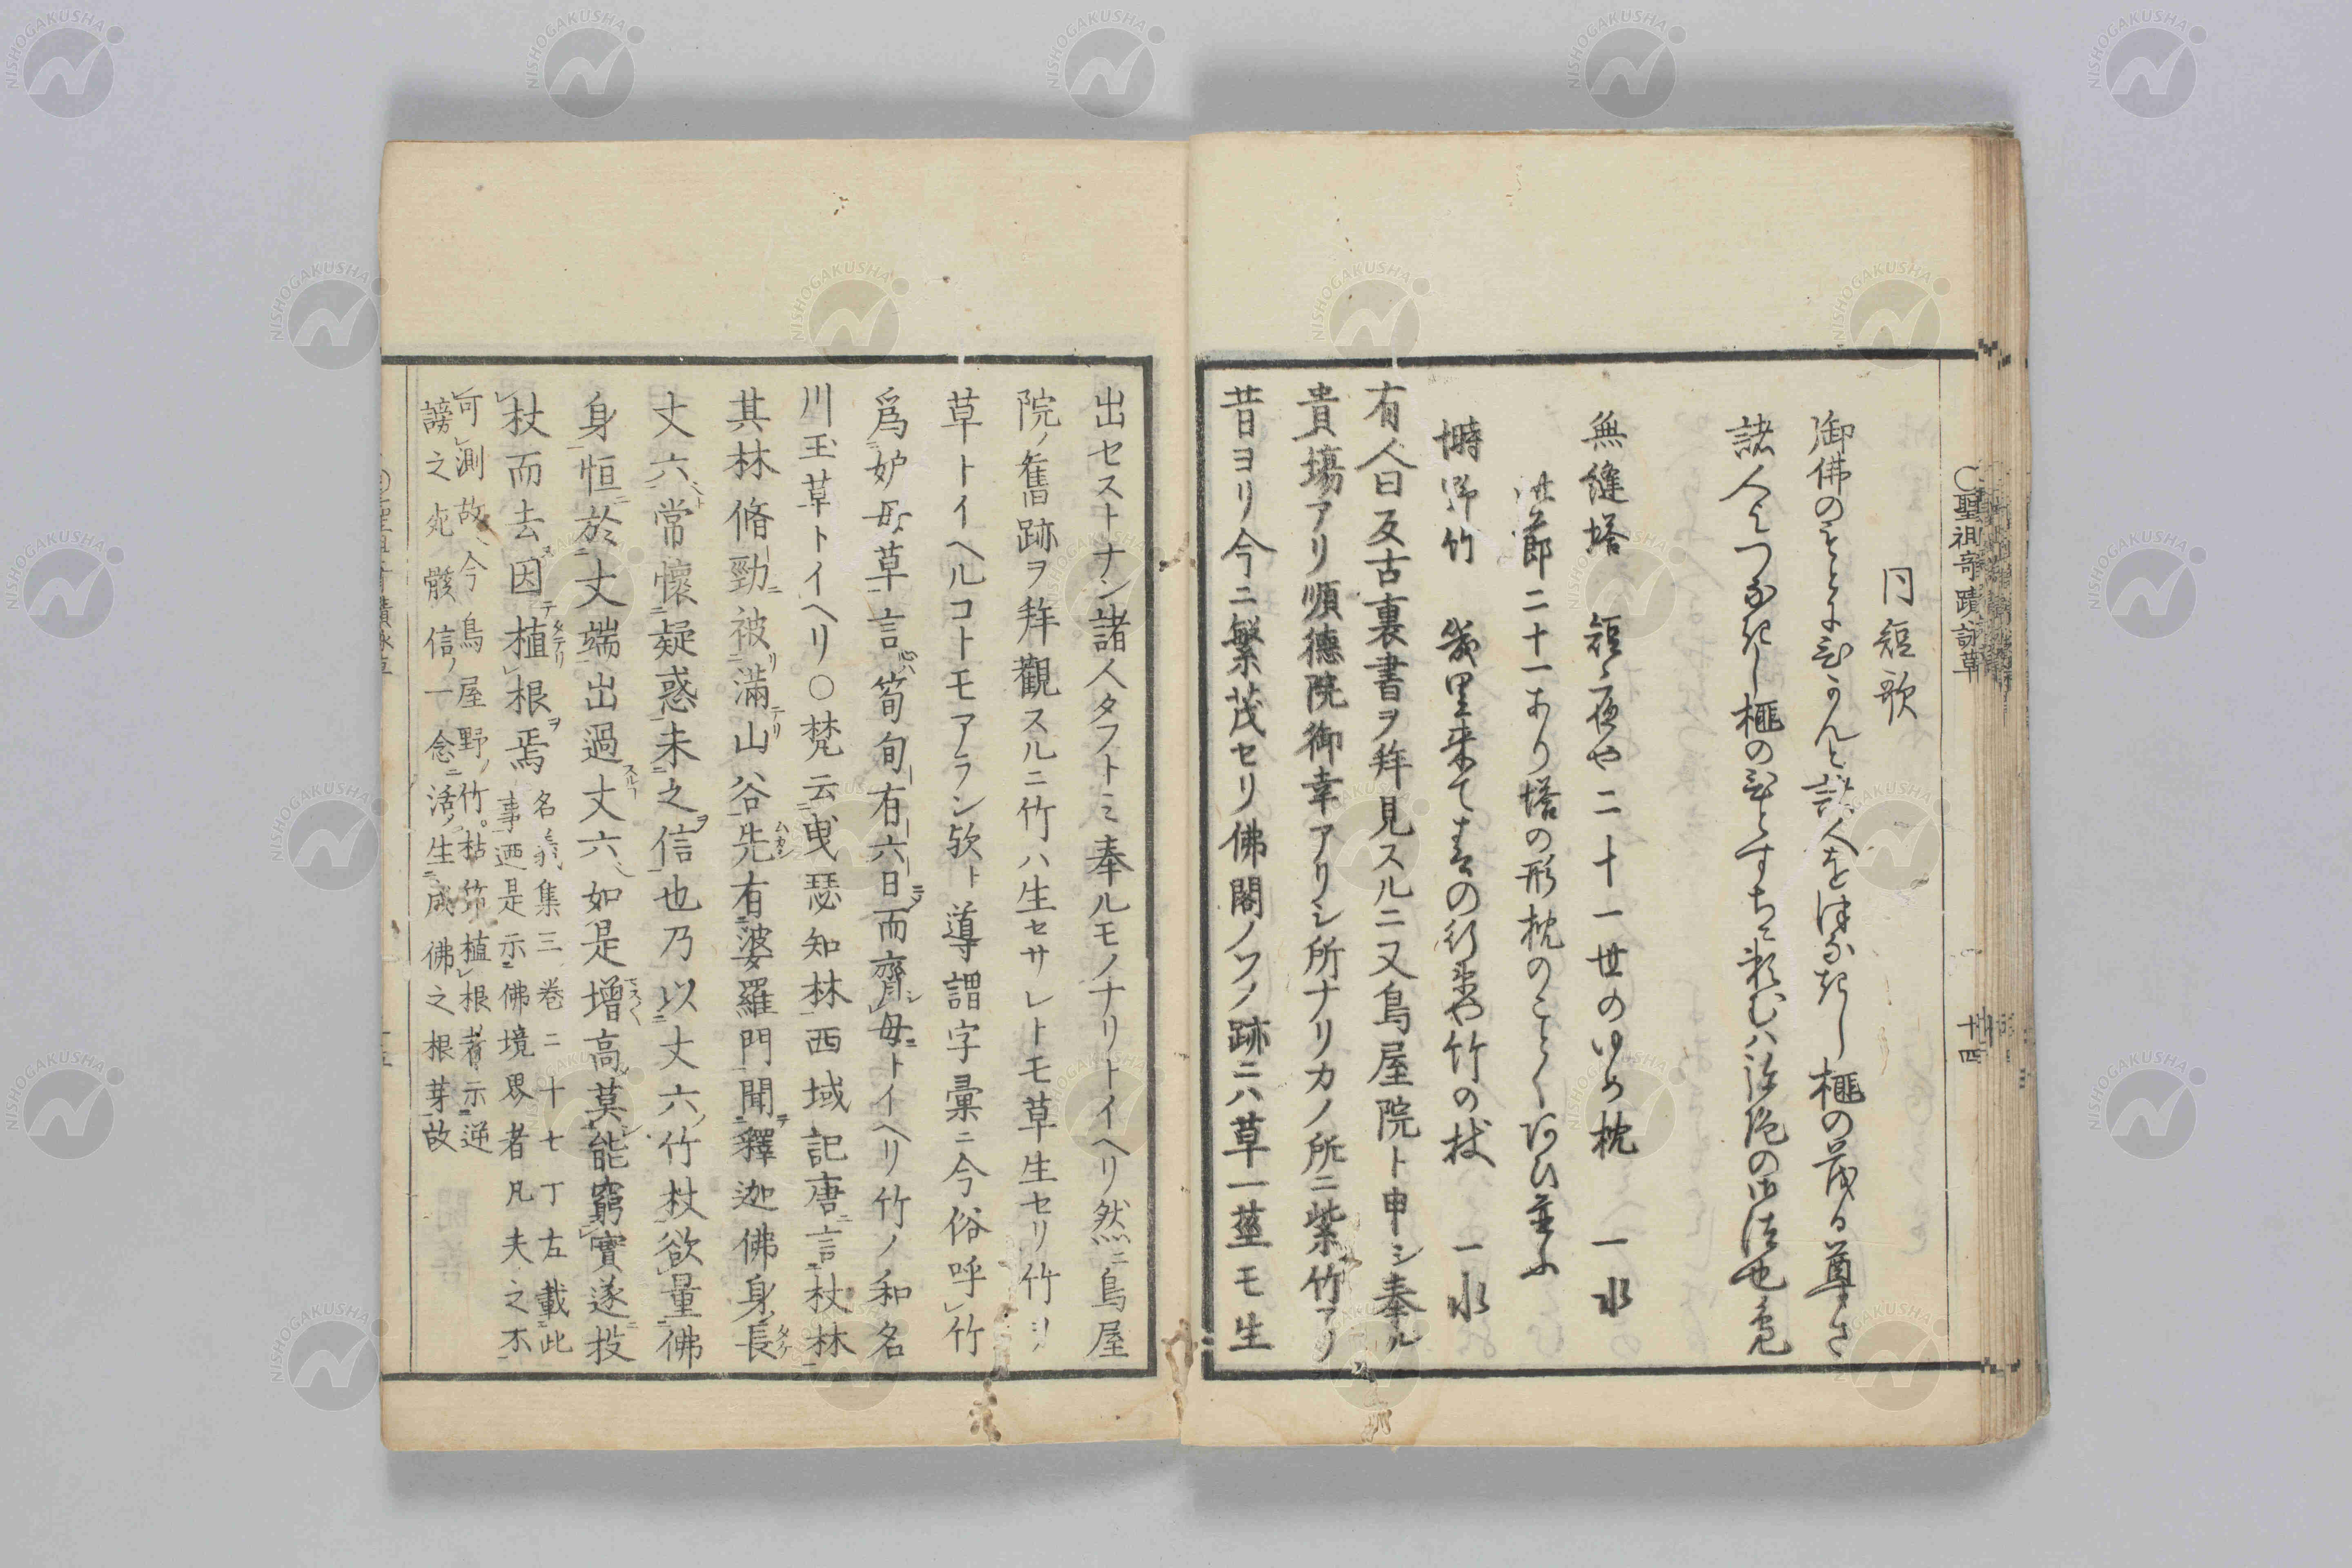 〇聖祖竒蹟詠草 十四
同短歌
諸人をつなきし榧の
無縫塔 短夜や二十一世のゆめ枕 一水
此節二十一あり塔の形枕のことく
塒野竹 幾里来て春の行衛や竹の杖 一水
有人曰反古裏書ヲ拜見スルニ又鳥屋院ト申シ奉ル
貴塲アリ順德院御幸アリシ所ナリカノ所ニ紫竹アリ
昔ヨリ今ニ繁茂セリ佛閣ノアノ跡ニハ草一莖モ生
出セストナン諸人タフトミ奉ルモノナリトイヘリ然ニ鳥屋
院ノ舊跡ヲ拜觀スルニ竹ハ生セサレトモ草生セリ竹ヲ
草トイヘルコトモアラン歟ト導謂字彙ニ今俗呼竹
爲妒母草言筍旬有六日而齊母トイヘリ竹ノ和名
川玉草トイヘリ〇梵云曳瑟知林西域記唐言杖林
其林脩勁被滿山谷先有婆羅門聞釋迦佛身長
丈六常懷疑惑未之信也乃以丈六竹杖欲量佛
身恒於丈端出過丈六如是增高莫能窮實遂投
杖而去因植根焉 名義集三卷二十七丁左載此
事迺是示佛境界者凡夫之不
可測故今鳥屋野ノ竹枯笻植根者示逆
謗之死骸信ノ一念ニ活ノ生成佛之根芽故